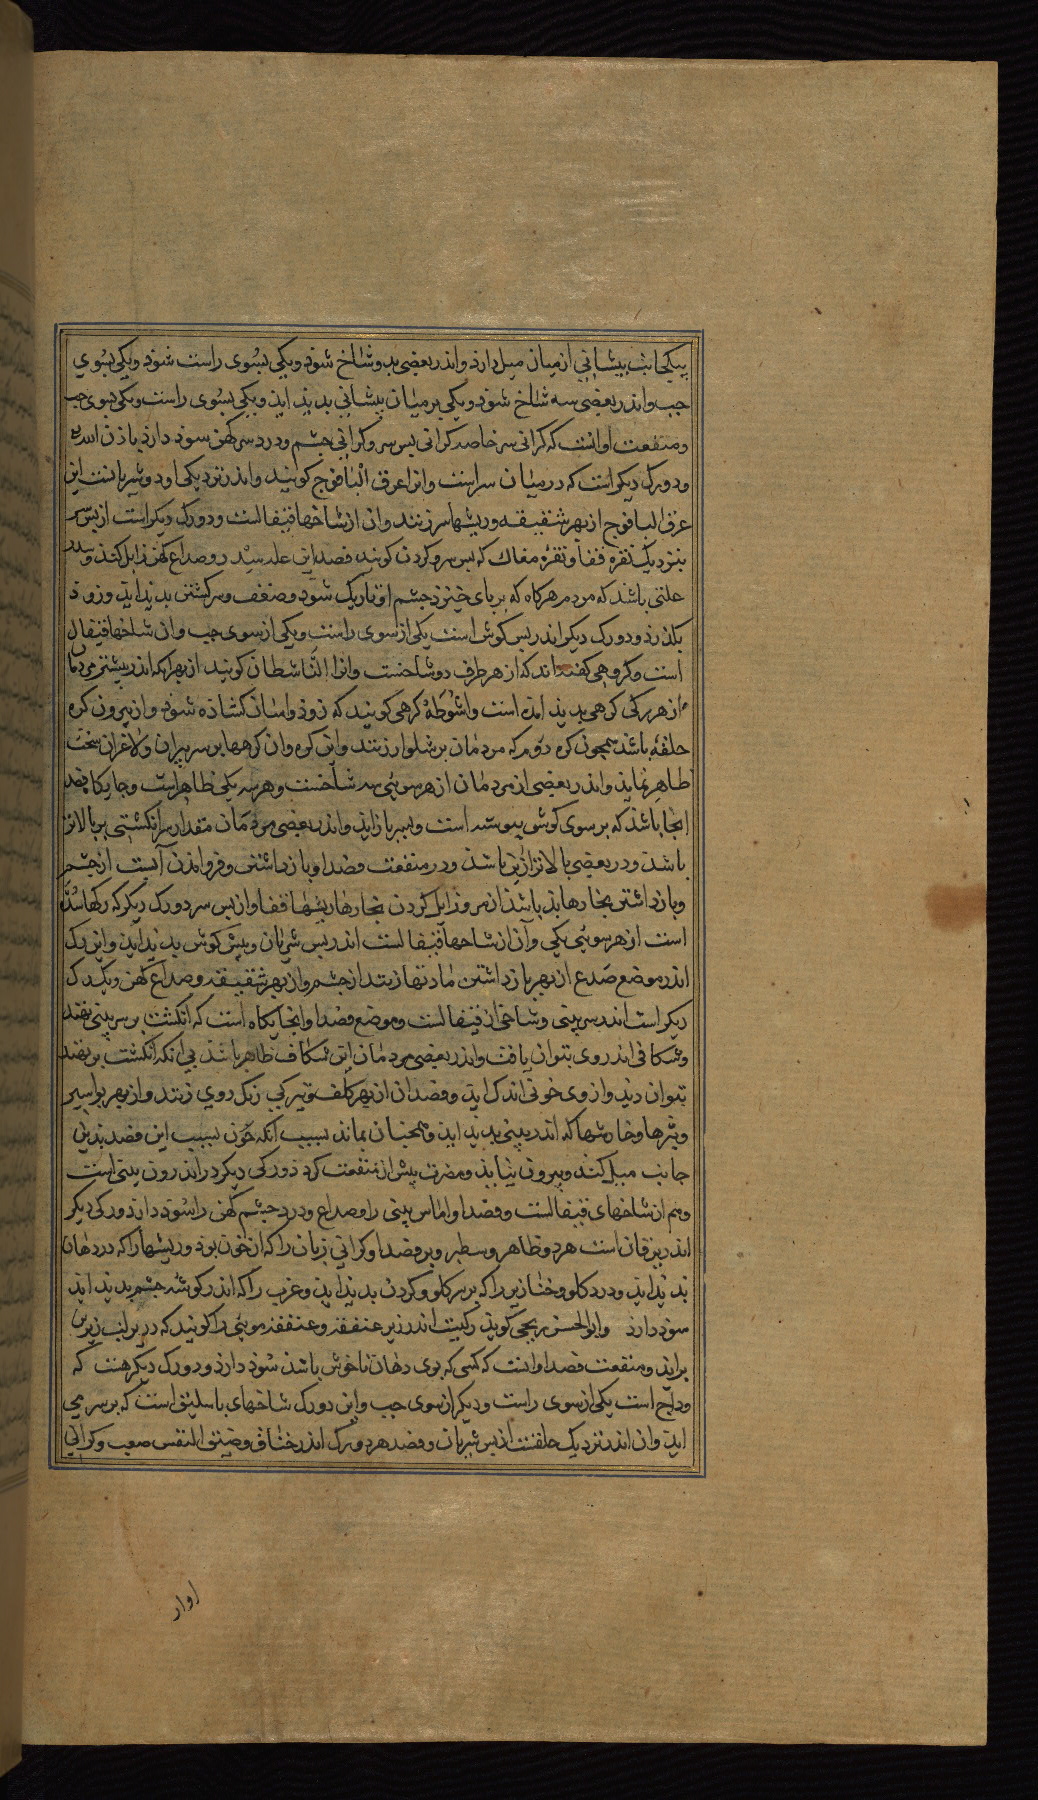 بیکجانب بیشانی از میان میل دارد و اندر بعضی بدو شاخ شود و یکی بسوی راست شود و یکی بسوی
جب و اندر بعضی سه شاخ شود و یکی بر میان بیشانی بدیذ اید و یکی بسوی راست و یکی بسوی جب
و منفعت او انست که کرانی سر خاصه کرانی بس سر و کرانی جشم و درد سر کهن سوذ دارد باذن الله
و دو رک دیکر است که در میان سراست و انرا عرق الیافوج کویند و اندر نزدیکی او دو شریانست این
عرق الیافوج از بهر شقیقه و ریشهاء سر زنند و ان از شاخها قیفالست و دو رک دیکر است از بس سر
بنزدیک نقره قفا و نقره مغاک که بس سر و کردن کویند فصد این علة سدر و صداع کهن زایل کند و سدر
علتی باشد که مردم هرکاه که بر بای خیزد جشم او تاریک شود و ضعف و سرکشتن بدیذ اید و زوذ
بکذرد و دو رک دیکر اندر بس کوش است یکی از سوی راست و یکی از سوی جب و ان شاخها قیفال
است و کروهی کفته اند که از هر طرف دو شاخست و انرا الناشطان کویند از بهر انکه اندر بیشتر مردمان
از هر رکی کرهی بدیذ امده است و انشوطه کرهی کویند که زوذ و اسان کشاذه شود و از بیرون کره
حلقه باشد همجون کره دوم که مردمان بر شلوار زنند و این کره و ان کرهها بر سر بیران و لاغران سخت
ظاهر نماید و اندر بعضی از مردمان از هر سوئی سه شاخست و هر سه یکی ظاهر است و جایکاه فصد
انجا باشد که بر سوی کوش بیوسته است و ببر باز اید و اندر بعضی مردمان مقدار سر انکشتی بر بالاتر
باشد و در بعضی بالاتر ازین باشد و در منفعت فصد او باز داشتن و فرو امدن آبست از جشم
و باز داشتن بخارها بد باشد از سر و زایل کردن بخارها ریشها قفا و از بس سر دو رک دیکر که رکها
است از هر سوئی یکی و آن از شاخها قیفالست اندر بس شریان و بیش کوش بدیذ اید و این رک
اندر موضع صدع از بهر باز داشتن مادتها زنند از جشم و از بهر شقیقه و صداع کهن و یک رک
دیکر است اندر سر بینی و شاخی از قیفالست و موضع فصد او انجایکاه است که انکشت بر سر بینی نهند
و شکافی اندر وی بتوان یافت و اندر بعضی مردمان این شکاف ظاهر باشد بی انکه انکشت بر نهند
بتوان دید و از وی خونی اندک اید و فصد ان از بهر کلف و تیرکی رنک روی زنند و از بهر بواسیر
و بثرها و خارشها که اندر بینی بدیذ اید و همجنان بماند بسبب انکه خون بسبب این فصد بدین
جانب میل کند و بیرون نیاید و مضرت بیش از منفعت کرد و رکی دیکر در اندرون بینی است
و هم از شاخهای قیفالست و فصد او اماس بینی را و صداع و درد جشم کهن را سوذ دارد و رکی دیکر
اندر زیر زبان است هر دو ظاهر و سطبر و بر فصد او کرانی زبان را که از خون بود و ریشها را که در دهان
بدیذ اید و درد کلو و خنازیر را که بر سر کلو و کردن بدیذ اید و غرب را که اندر کوشه جشم بدیذ اید
سوذ دارد و ابو الحسن ترنجی کوید رکیست اندر زیر عنفقه و عنفقه موئی را کویند که در زیر لب زیرین
براید و منفعت فصد او انست که کسی که بوی دهان ناخوش باشد سوذ دارد و دو رک دیکر هست که
وداج است یکی از سوی راست و دیکر از سوی جب و این دو رک شاخهای باسلیق است که بر سر می
اید و ان اندر نزدیک حلقست از بس شریان و فصد هر دو رک اندر خناق و ضیق النفس صعب و کرانی
اواز